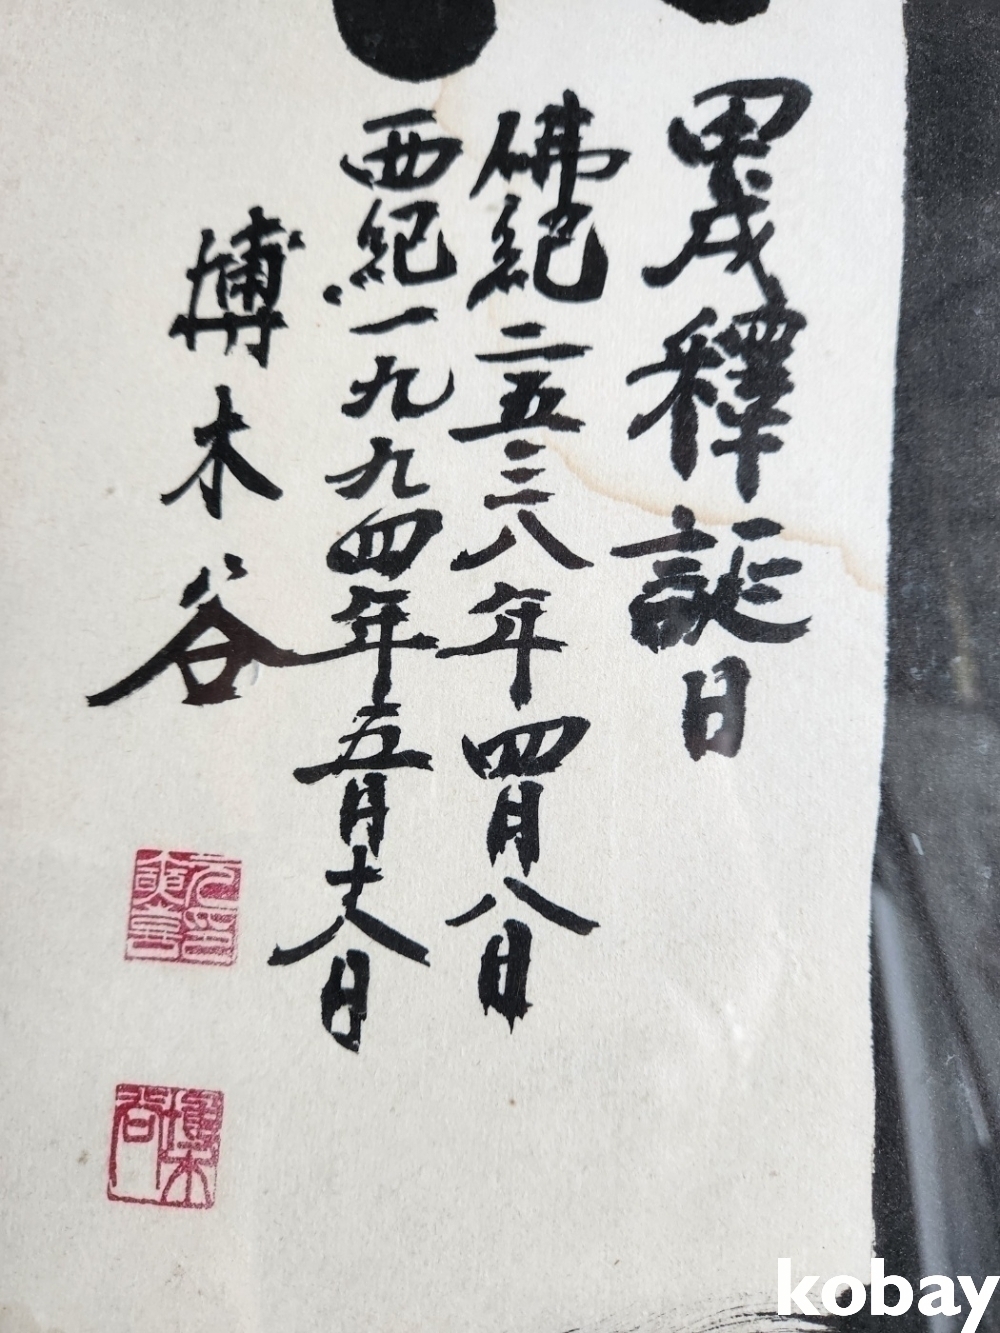 甲戌釋誕日
佛紀二五三八年四月八日
西紀一九九四年五月十八日
博木谷
博木谷
kobay